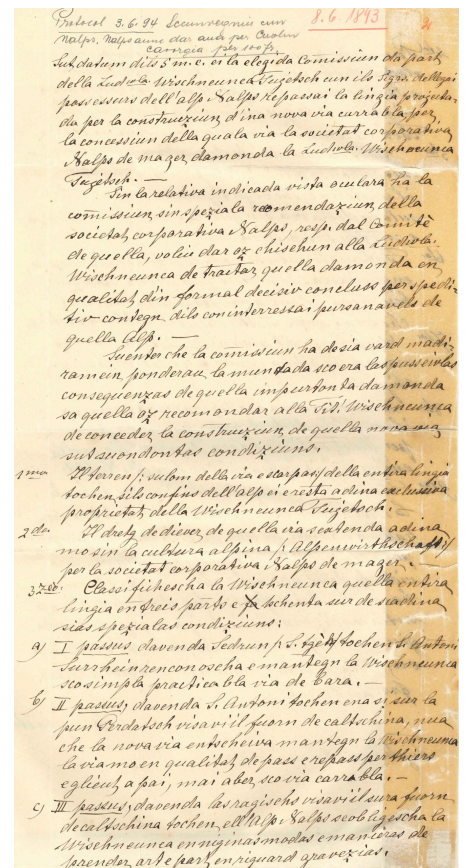 Protocol 3.6.94 Secumvegniu cun
Nalps, Nalps aune dar aulp per Cuolm
Cavorgia per 100 fr.
8.6.1893
Sut datum dils 5 m.c. ei la elegida Comissiun da part
della Ludvla. Wischneunca Tujetsch cun ils Sigrs. delegai
possessurs dell'alp Nalps repassai la lingia projecta-
da per la construcziun d'ina nova via carrabla per,
la concessiun della quala via la societat corporativa
Nalps de mager, damonda la Ludvla. Wischneunca
Tujetsch. —
Sin la relativa indicada vista oculara ha la
comissiun, sin speziala recomendaziun della
societat corporativa Nalps, resp. dal Comitè
de quella, voliu dar oz chischun alla Ludvla.
Wischneunca de tractar quella damonda en
qualitat d'in formal decisiv concluss per spedi-
tiv contegn, dils coninteressai pursanavels de
quella alp. —
Suenter che la comissiun ha dosia vard madi-
ramein, ponderau la muntada sco era las pusseivlas
consequenzas de quella impurtonta damonda
sa quella oz recomandar alla Tit. Wischneunca
de conceder la construcziun de quella nova via
sut suondontas condiziuns.
1mo Il terren /: sulom della via e scarpas :/ della entira lingia
tochen sils confins dell'alp ei e resta adina exclusiva
proprietat della Wischneunca Tujetsch. —
2do Il dretg de diever de quella via s'extenda adina
mo sin la cultura alpina /: Alpenwirthschaft :/
per la societat corporativa Nalps de mager. —
3zo Classifichescha la Wischneunca quella entira
lingia en treis parts e tschenta sur de scadina
sias spezialas condiziuns:
a) I passus, davenda Sedrun /: S. Gjetg :/ tochen S. Antoni
Surrhein renconoscha e mantegn la Wischneunca
sco simpla practicabla via de bara. —
b) II passus, davenda S. Antoni tochen ena si sur la
pun Perdatsch visavi il fuorn de caltschina, nua
che la nova via entscheiva mantegn la Wischneunca
la via mo en qualitat de pass e repass per thiers
e glieut a pai, mai aber sco via carrabla. —
c) III passus, davenda las ragischs visavi il sura fuorn
de caltschina tochen ell'Alp Nalps seobligescha la
Wischneunca en niginas modas e manieras de
prender art e part en riguard gravezias.